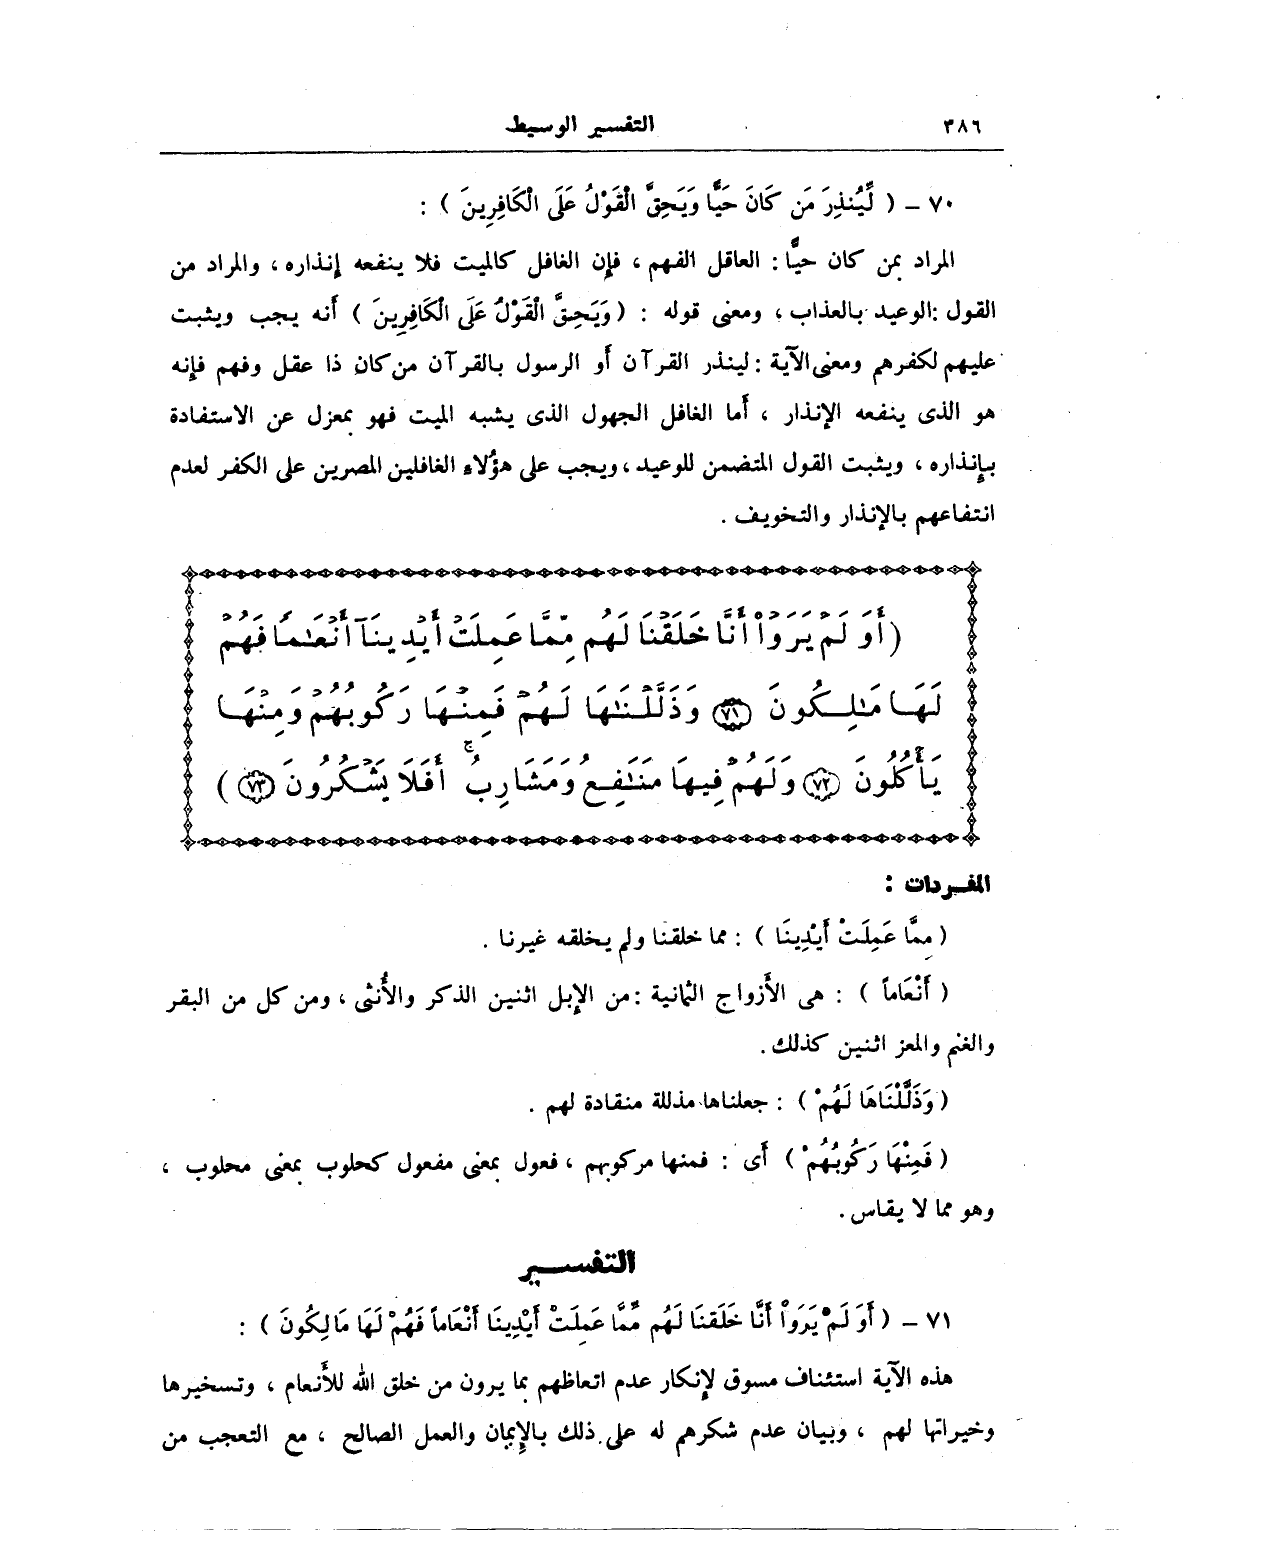 ٣٨٦ التفسير الوسيط
٧٠ – ( لِّيُنذِرَ مَن كَانَ حَيًّا وَيَحِقَّ الْقَوْلُ عَلَى الْكَافِرِينَ ) :
المراد بمن كان حيًّا : العاقل الفهم ، فإن الغافل كالميت فلا ينفعه إنذاره ، والمراد من
القول :الوعيد بالعذاب ، ومعنى قوله : ( وَيَحِقَّ الْقَوْلُ عَلَى الْكَافِرِينَ ) أنه يجب ويثبت
عليهم لكفرهم ومعنى الآية : لينذر القرآن أو الرسول بالقرآن من كان ذا عقل وفهم فإنه
هو الذى ينفعه الإنذار ، أما الغافل الجهول الذى يشبه الميت فهو بمعزل عن الاستفادة
بإنذاره ، ويثبت القول المتضمن للوعيد ، ويجب على هؤلاء الغافلين المصرين على الكفر لعدم
انتفاعهم بالإنذار والتخويف .
( أَوَ لَمْ يَرَوْاْ أَنَّا خَلَقْنَا لَهُم مِّمَّا عَمِلَتْ أَيْدِينَآ أَنْعَـٰمًا فَهُمْ
لَهَا مَـٰلِكُونَ ٧١ وَذَلَّلْنَـٰهَا لَهُمْ فَمِنْهَا رَكُوبُهُمْ وَمِنْهَا
يَأْكُلُونَ ٧٢ وَلَهُمْ فِيهَا مَنَـٰفِعُ وَمَشَارِبُ ۚ أَفَلَا يَشْكُرُونَ ٧٣ )
المفردات :
( مِمَّا عَمِلَتْ أَيْدِينَا ) : مما خلقنا ولم يخلقه غيرنا .
( أَنْعَاماً ) : هى الأزواج الثمانية : من الإبل اثنين الذكر والأُنثى ، ومن كل من البقر
والغنم والمعز اثنين كذلك .
( وَذَلَّلْنَاهَا لَهُمْ ) : جعلناها مذللة منقادة لهم .
( فَمِنْهَا رَكُوبُهُمْ ) أى : فمنها مركوبهم ، فعول بمعنى مفعول كحلوب بمعنى محلوب ،
وهو مما لا يقاس .
التفسير
٧١ – ( أَوَ لَمْ يَرَوْاْ أَنَّا خَلَقنَا لَهُم مِّمَّا عَمِلَتْ أَيْدِينَا أَنْعَاماً فَهُمْ لَهَا مَالِكُونَ ) :
هذه الآية استئناف مسوق لإنكار عدم اتعاظهم بما يرون من خلق الله للأنعام ، وتسخيرها
وخيراتها لهم ، وبيان عدم شكرهم له على ذلك بالإيمان والعمل الصالح ، مع التعجب من